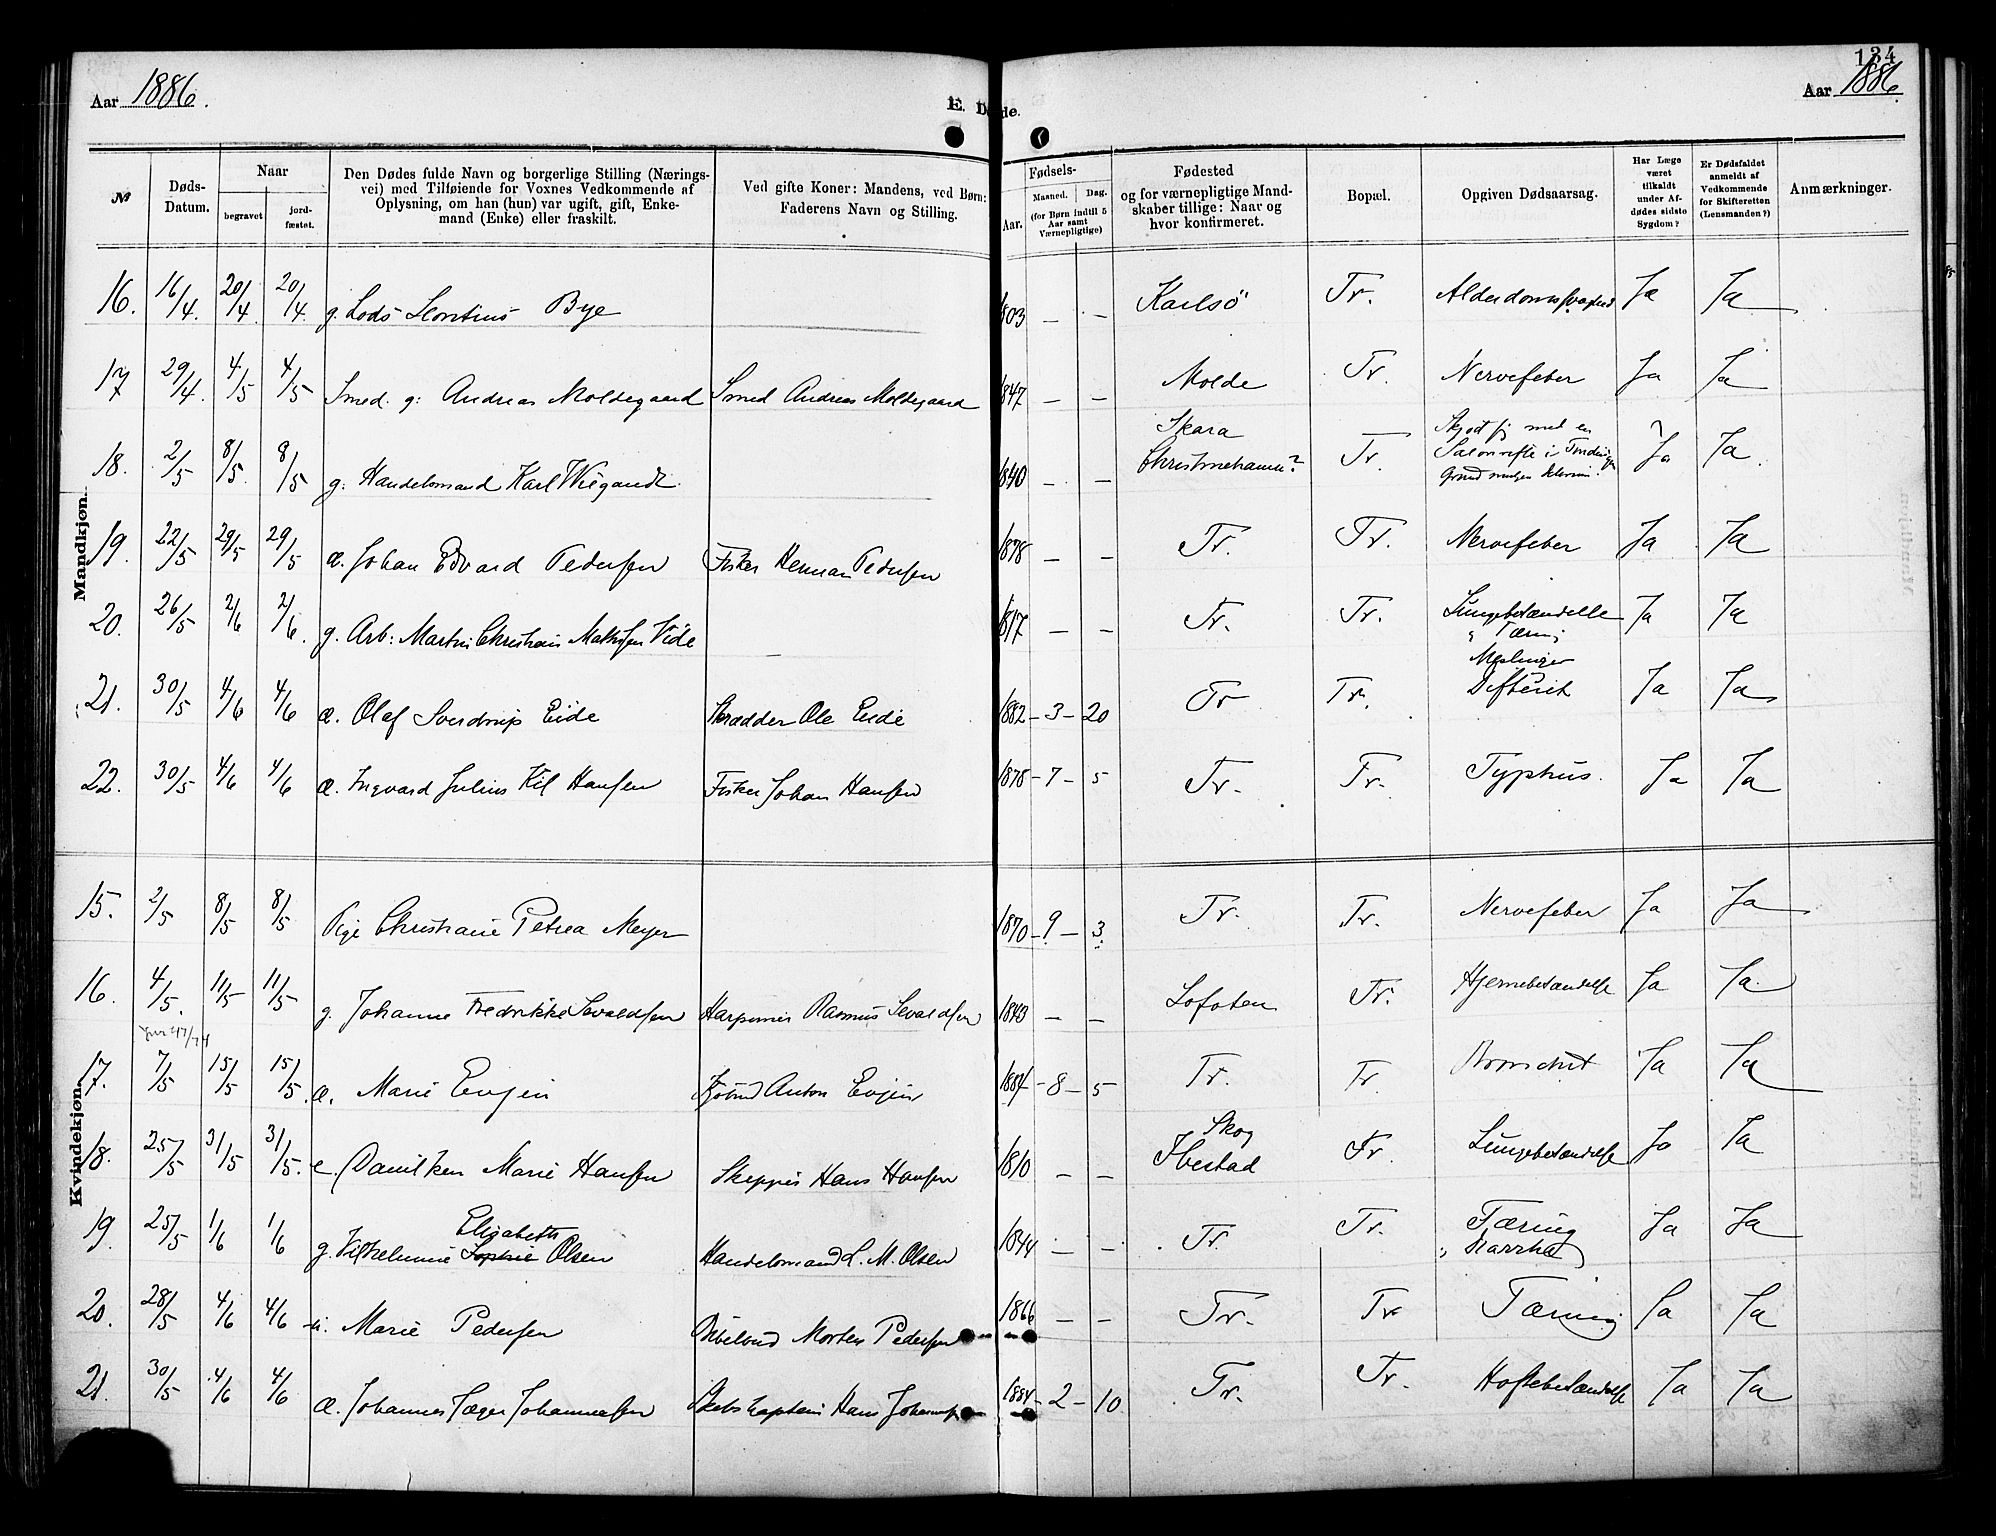 134
Aar 1886.
Aar 1886.
E. Døde.
№
Døds-Datum.
Naar
begravet
jordfæstet.
Den Dødes fulde Navn og borgerlige Stilling (Nærings-
vei) med Tilføiende for Voxnes Vedkommende af
Oplysning, om han (hun) var ugift, gift, Enke-
mand (Enke) eller fraskilt.
Ved gifte Koner: Mandens, ved Børn:
Faderens Navn og Stilling.
Fødsels-
Aar.
Maaned.
Dag.
(for Børn indtil 5
Aar samt
Værnepligtige)
Fødested
og for værnepligtige Mand-
skaber tillige: Naar og
hvor konfirmeret.
Bopæl.
Opgiven Dødsaarsag.
Har Læge
været
tilkaldt
under Af-
dødes sidste
Sygdom?
Er Dødsfaldet
anmeldt af
Vedkommende
for Skifteretten
(Lensmanden?)
Anmærkninger.
Mandkjøn.
16. 16/4. 20/4. 20/4. g. Lods Leontius Bye 1803 — — Karlsö Tr. Ja Ja
17 29/4. 4/5 4/5 Smed. g: Andreas Moldegaard Smed Andreas Moldegaard 1847 — — Molde Tr. Nervefeber Ja Ja
18. 2/5 8/5. 8/5 g: Handelsmand Karl Wiegandt. 1840 — — Skara Christinehamn? Tr. Skjød sig med en Salonrifle i Ja Ja.
19. 22/5 29/5 29/5 æ. Johan Edvard Pedersen Fisker Herman Pedersen 1878 — — Tr. Tr. Nervefeber Ja Ja
20. 26/5 2/6 2/6. g. Arb: Martin Christian Vide 1817 — — Tr. Tr. Lungebetændelse Tæring Ja Ja
21. 30/5 4/6 4/6 æ. Olaf Sverdrup Eide Skrædder Ole Eide 1882 - 3 - 20 Tr Tr. Meslinger Difterit Ja Ja
22. 30/5 4/6 4/6 æ. Ingvard Julius Kil Hansen Fisker Johan Hansen 1878 - 7 - 5 Tr. Tr. Typhus. Ja Ja
Kvindekjøn.
15. 2/5 8/5 8/5 Pige Christiane Petrea Meyer 1870 - 9 - 3. Tr. Tr. Nervefeber Ja Ja
16. 4/5. 11/5 11/5 g. Johanne Fredrikke Sevaldsen Rasmus Sevaldsen 1843 — — Lofoten Tr. Hjernebetændelse Ja Ja.
17. 7/5 15/5 15/5. æ. Marie Evjen Anton Evjen 1884 - 8 - 5 Tr. Tr. Bronchit Ja Ja
18. 25/5 31/5 31/5. e. Daniken Marie Hansen Skipper Hans Hansen 1810 — — Skog Ibestad Tr. Lungebetændelse Ja Ja
19. 25/5 1/6 1/6 g. Vilhelmine Sophie Elisabeth Olsen Handelsmand L. M. Olsen 1844 — — Tr. Tr. Tæring Ja Ja
20. 28/5 4/6 4/6 u. Marie Pedersen Bibelbud Morten Pedersen 1866 — — Tr. Tr Tæring Ja Ja
21. 30/5 4/6 4/6 æ. Johannes Jæger Johannesen Skibskaptein Hans 1884 - 2 - 10 Tr. Tr. Hoftebetændelse Ja Ja